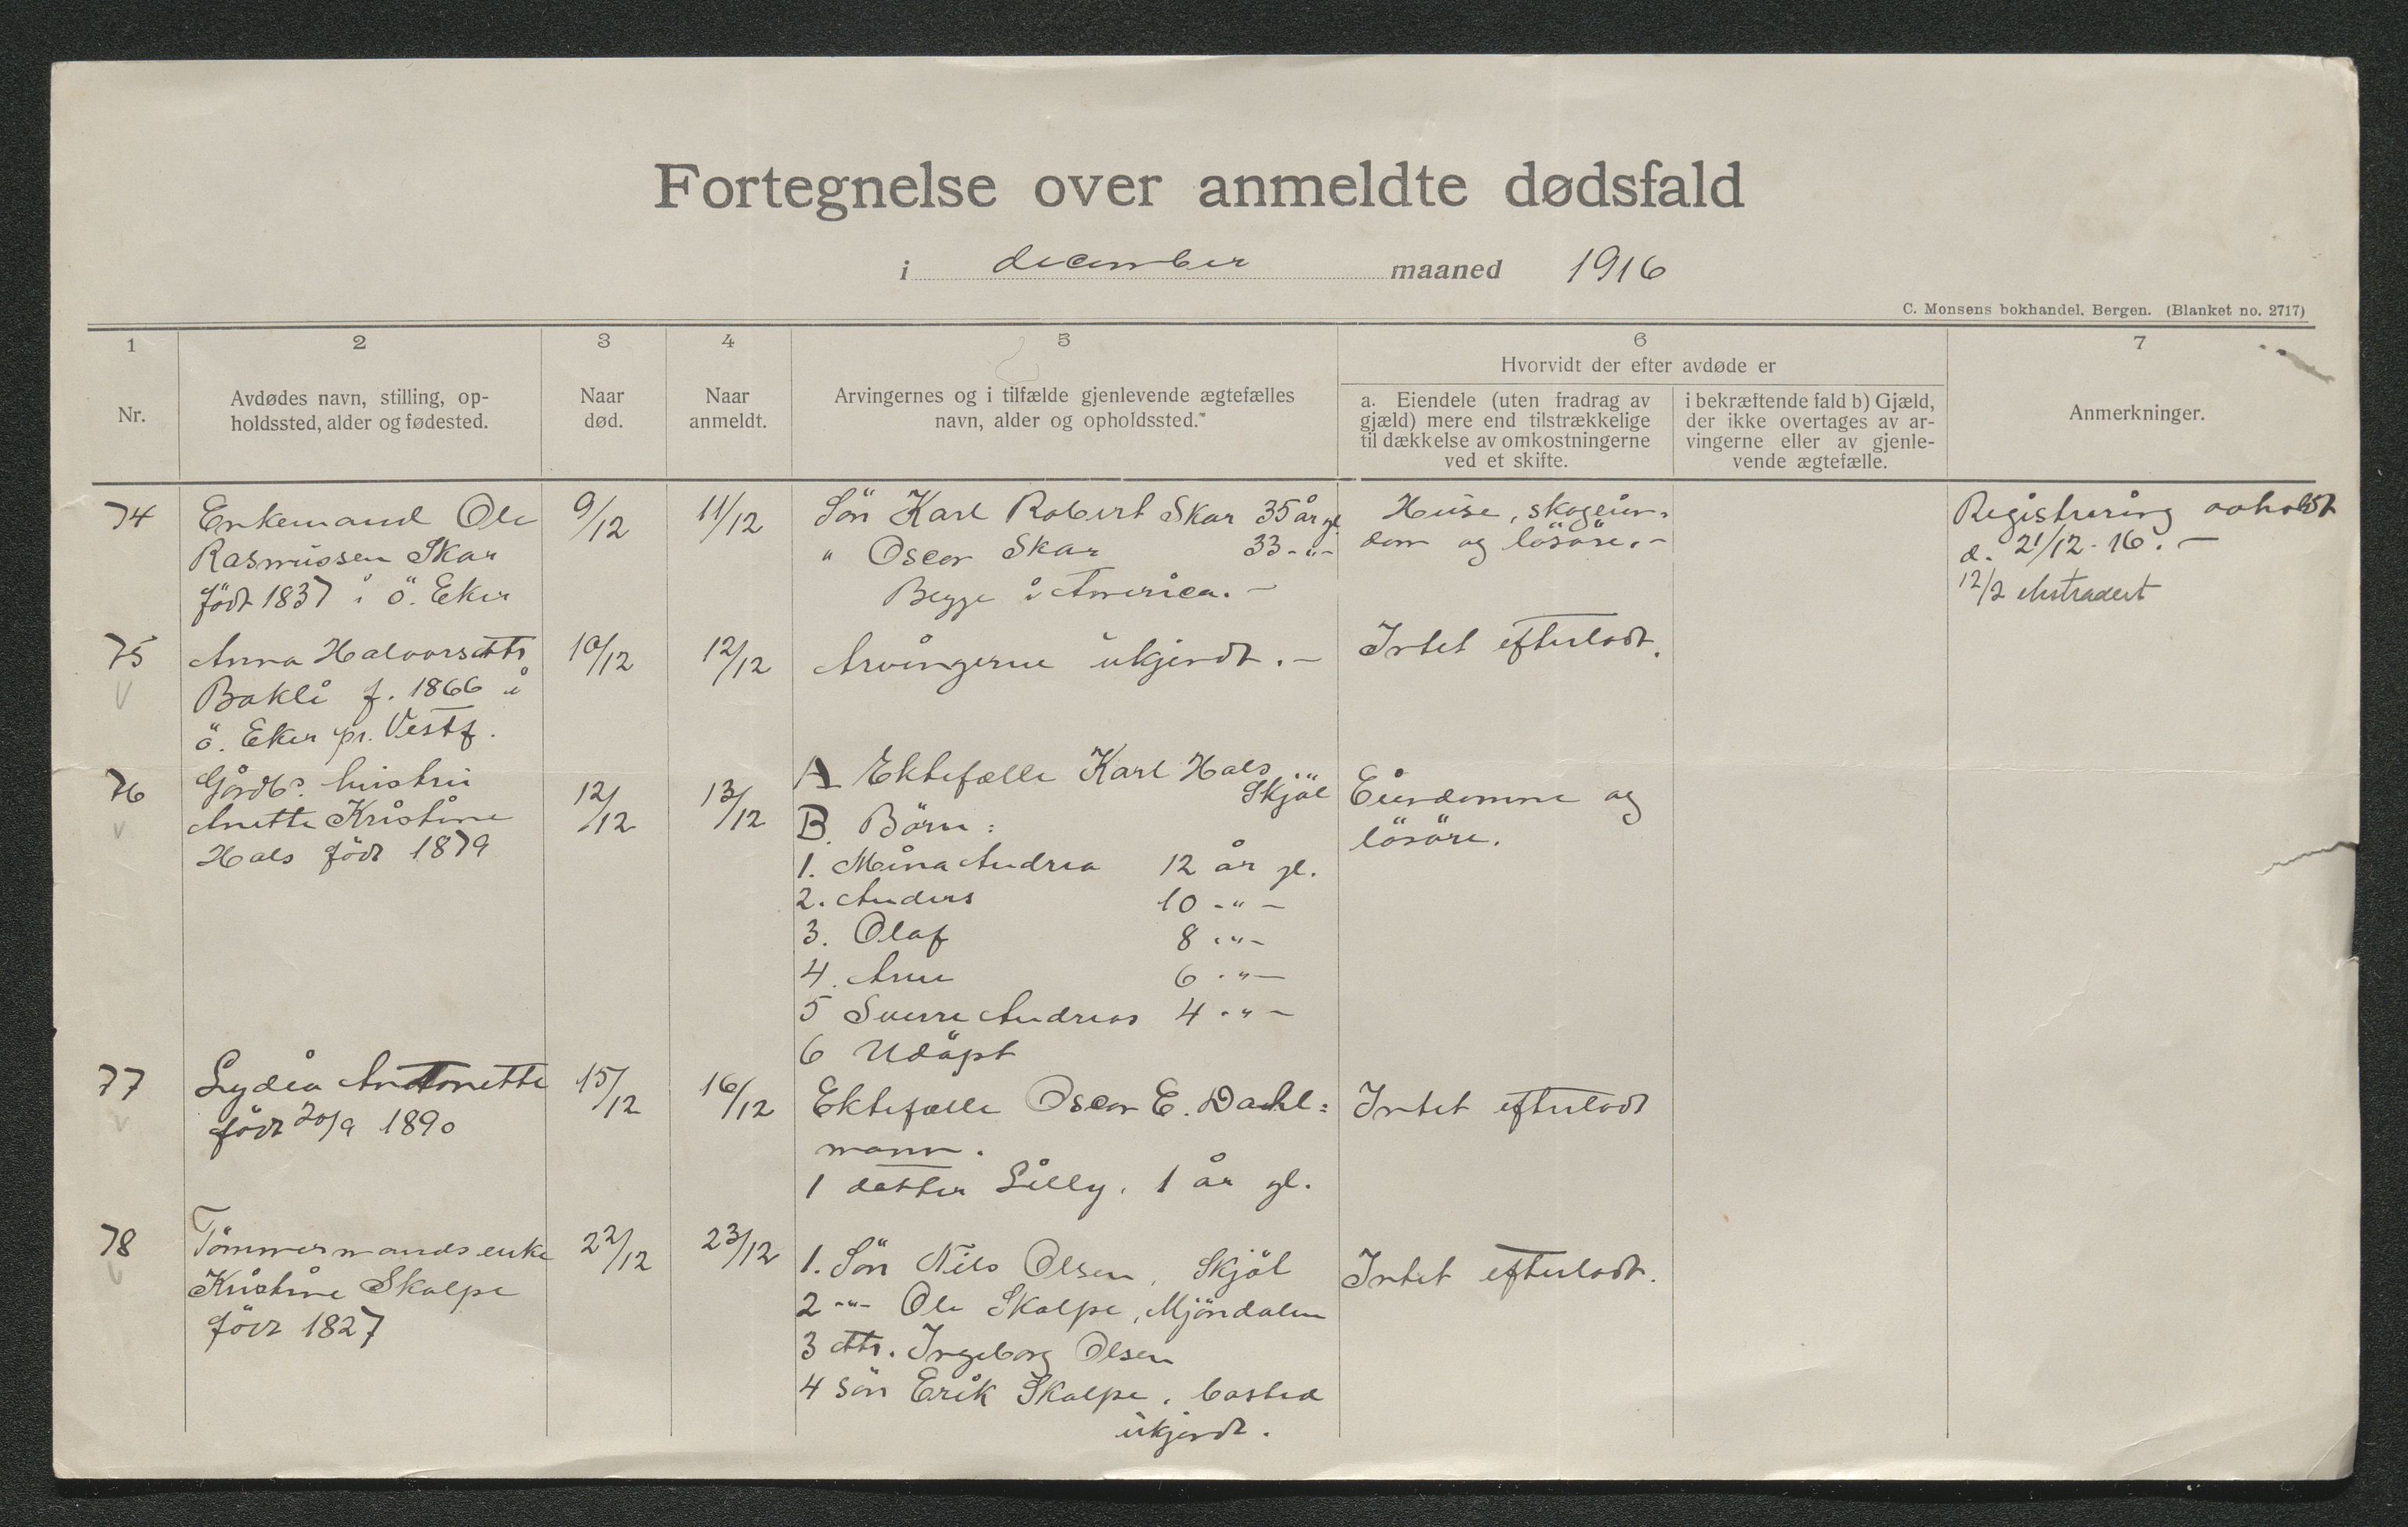 Fortegnelse over anmeldte dødsfald
i december maaned 1916
C. Monsens bokhandel, Bergen. (Blanket no. 2717)
1
Nr.
2
Avdødes navn, stilling, op-
holdssted, alder og fødested.
3
Naar
død.
4
Naar
anmeldt.
5
Arvingernes og i tilfælde gjenlevende ægtefælles
navn, alder og opholdssted.*
6
Hvorvidt der efter avdøde er
a. Eiendele (uten fradrag av
gjæld) mere end tilstrækkelige
til dækkelse av omkostningerne
ved et skifte.
i bekræftende fald b) Gjæld,
der ikke overtages av ar-
vingerne eller av gjenle-
vende ægtefælle.
7
Anmerkninger.
74
Enkemand Ole
Rasmussen Skar
født 1837 i ö. Eker
9/12
11/12
Sön Karl Robert Skar 35 år gl.
" Oscar Skar 33 - " -
Begge i America. -
Huse, skogeien-
dom og lösöre. -
Registrering avholdt
d. 21/12 - 16. -
12/2 ekstradert
75
Anna Halvorsdttr
Bakli f. 1866 i
ö. Eker pr. Vestf.
10/12
12/12
Arvingerne ukjendt. -
Intet efterladt.
76
Gårdbr. hustru
Anette Kristine
Hals född 1879
12/12
13/12
A Ektefælle Karl Hals
Skjöl
B. Börn:
1. Mina Andrea 12 år gl.
2. Anders 10 - " -
3. Olaf 8 - " -
4. Arne 6 - " -
5 Sverre Andreas 4 - " -
6 Udöpt
Eiendomme og
lösöre.
77
Lydia Antonette
född 20/9 1890
15/12
16/12
Ektefælle Oscar E. Dahl=
mann.
1 datter Lilly. 1 år gl.
Intet efterladt
78
Tömmermands enke
Kristine Skalpe
född 1827
22/12
23/12
1. Sön Nils Olsen, Skjöl
2 - " - Ole Skalpe, Mjöndalen
3 dttr. Ingeborg Olsen
4 sön Erik Skalpe, bosted
ukjendt.
Intet efterladt.